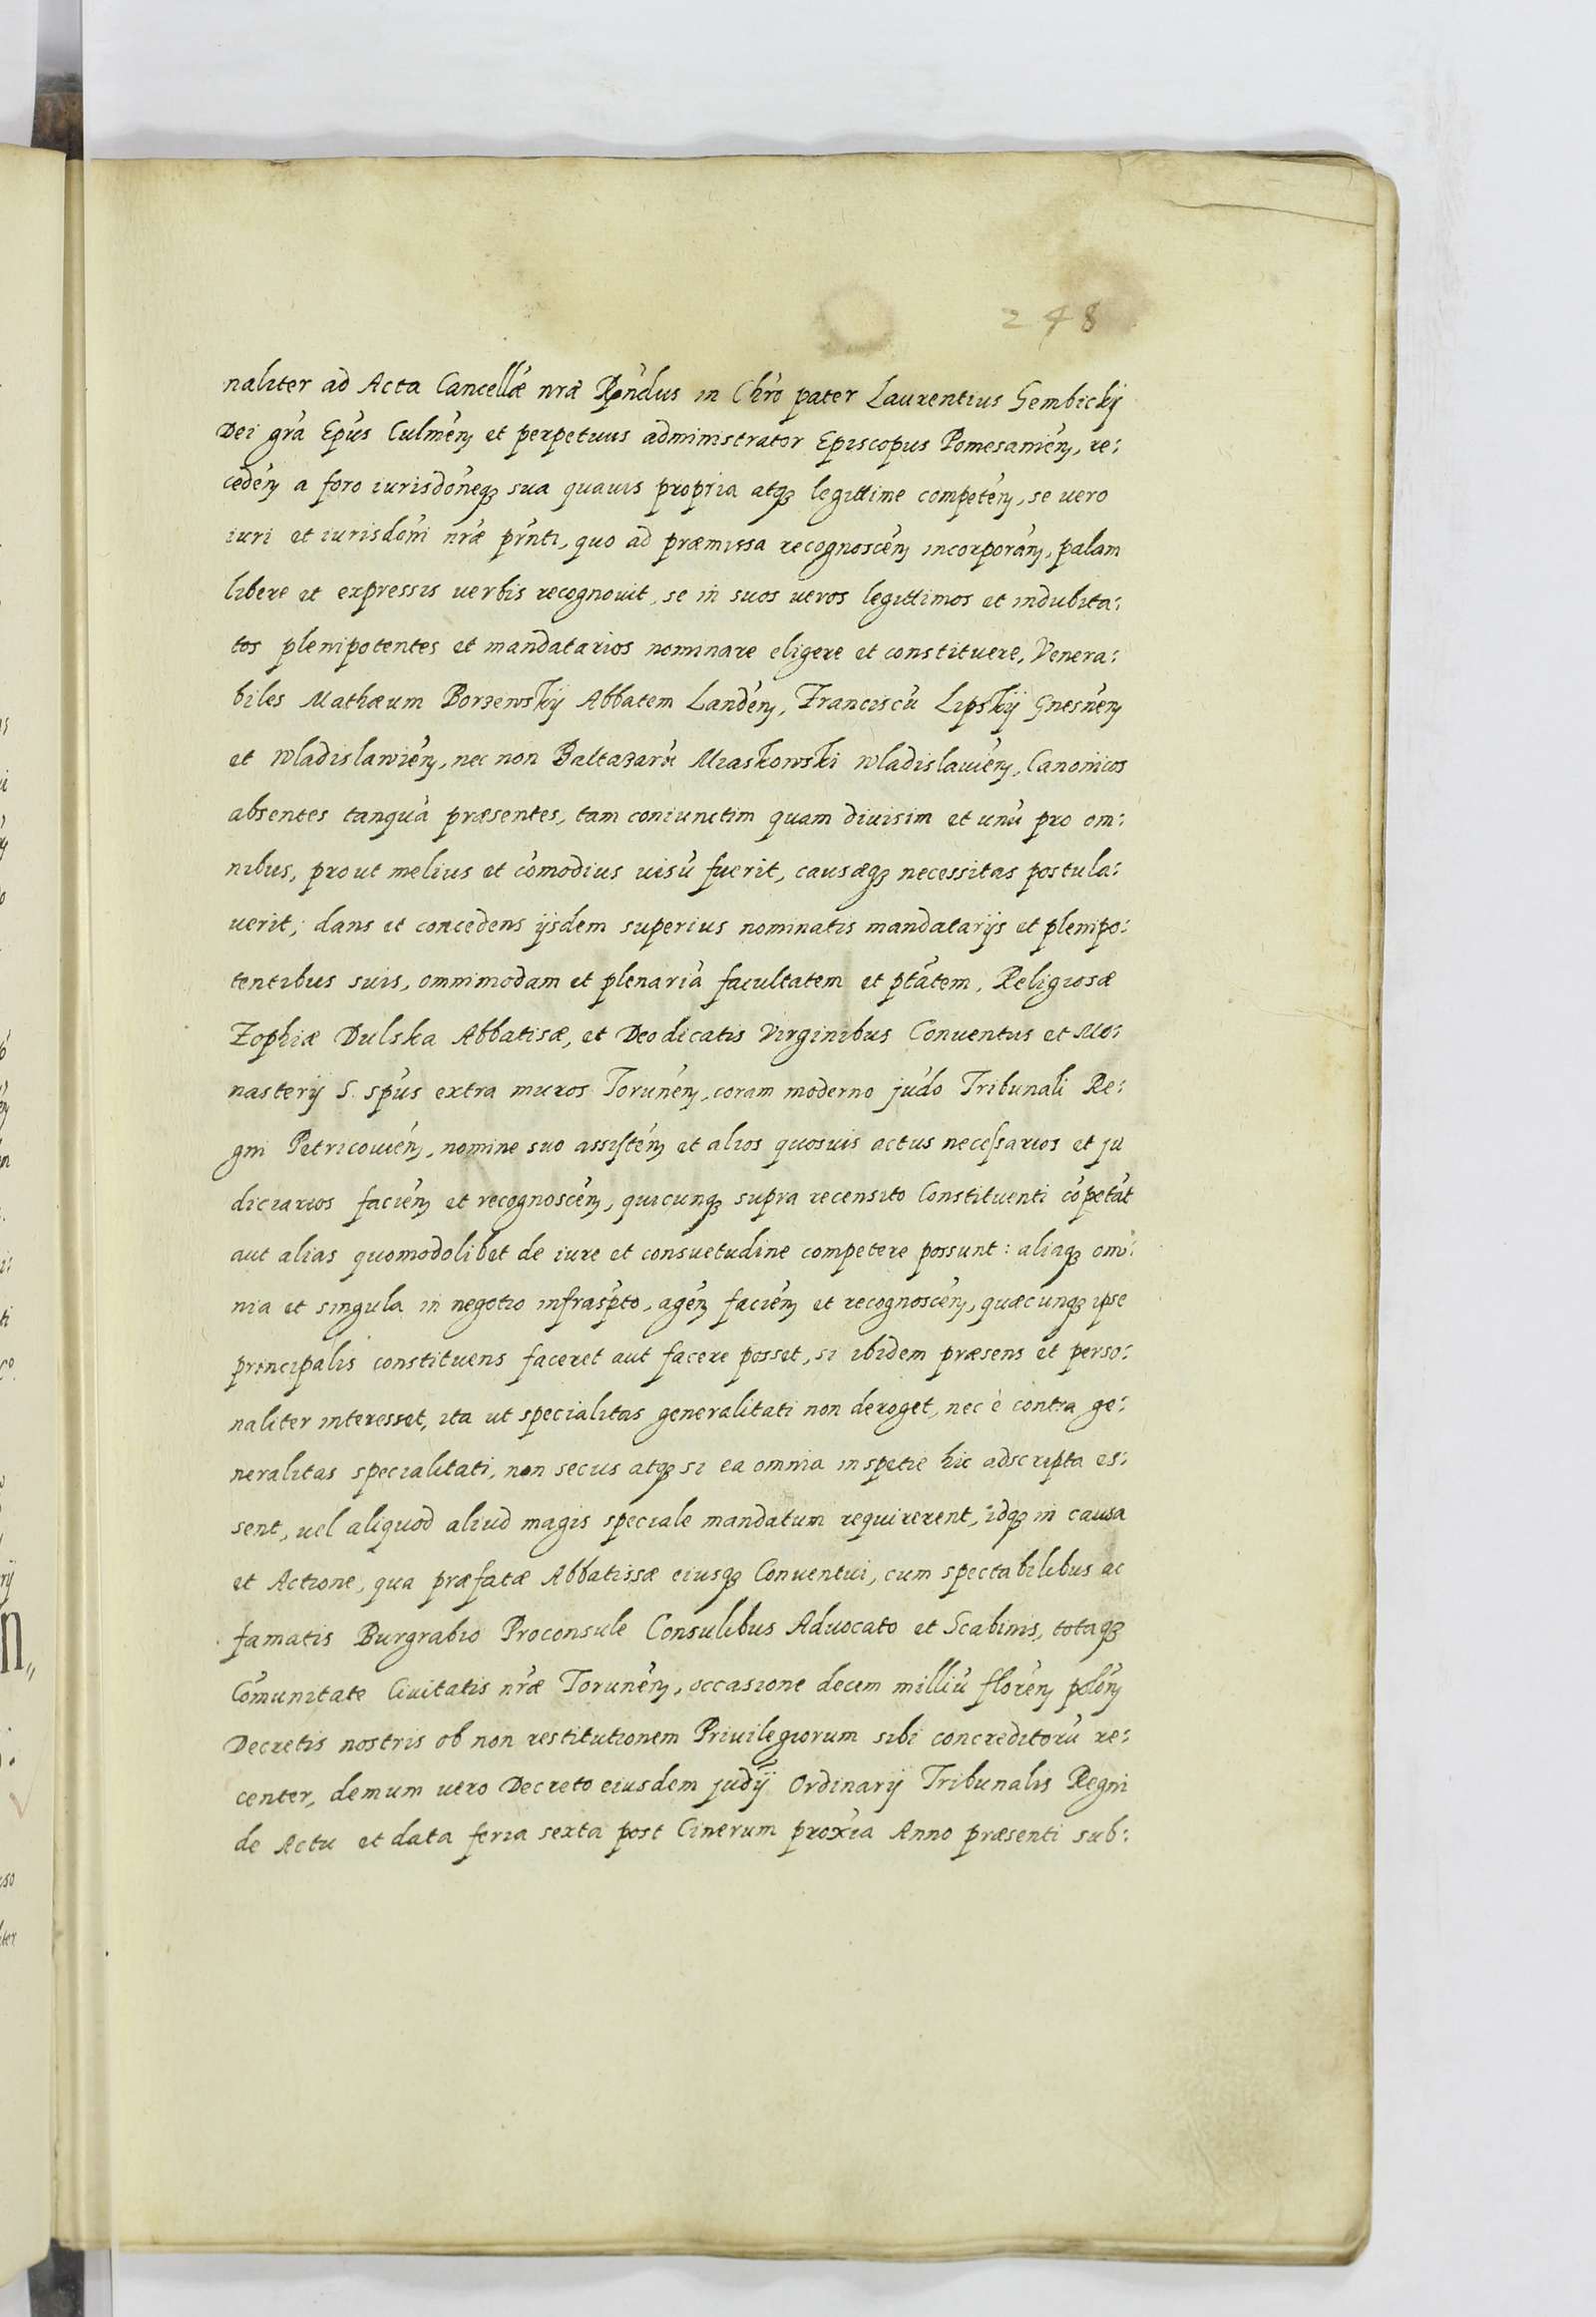 248
naliter ad Acta Cancellæ nræ Rendus in Chro pater Laurentius Gembickij
Dei gra Epus Culmen et perpetuus administrator Episcopus Pomesanien, re:
ceden a foro iurisdoneqꝫ sua quauis propria atqꝫ legittime competen, se uero
iuri et iurisdoni nræ prnti, quo ad præmissa recognoscen incorporan, palam
libere et expressis uerbis recognouit, se in suos ueros legittimos et indubita:
tos plenipotentes et mandatarios nominare eligere et constituere, Venera:
biles Mathæum Borzewskij Abbatem Landen, Franciscu Lipskij Gnesnen
et Wladislawien, nec non Baltazaru Miaskowski Wladislauien, Canonicos
absentes tanqua præsentes, tam coniunctim quam diuisim et unu pro om:
nibus, prout melius et comodius uisu fuerit, causæqꝫ necessitas postula:
uerit; dans et concedens ijsdem superius nominatis mandatarijs et plenipo:
tentibus suis, omnimodam et plenaria facultatem et ptatem, Religiosæ
Zophiæ Dulska Abbatisæ, et Deo dicatis Virginibus Conuentus et Mo:
nasterij S. spus extra muros Torunen, coram moderno judo Tribunali Re:
gni Petricouien, nomine suo assisten et alios quosuis actus necessarios et ju
diciarios facien et recognoscen, quicunqꝫ supra recensito Constituenti copetat
aut alias quomodolibet de iure et consuetudine competere possunt: aliaqꝫ om:
nia et singula in negotio infraspto, agen facien et recognoscen, quæcunqꝫ ipse
principalis constituens faceret aut facere posset, si ibidem præsens et perso:
naliter interesset, ita ut specialitas generalitati non deroget, nec è contra ge:
neralitas specialitati, non secus atqꝫ si ea omnia in spetie hic adscripta es:
sent, uel aliquod aliud magis speciale mandatum requirerent, idqꝫ in causa
et Actione, qua præfatæ Abbatissæ eiusqꝫ Conuentui, cum spectabilibus ac
famatis Burgrabio Proconsule Consulibus Aduocato et Scabinis, totaqꝫ
Comunitate Ciuitatis nræ Torunen, occasione decem milliu floren polon
Decretis nostris ob non restitutionem Priuilegiorum sibi concreditoru re:
center, demum uero Decreto eiusdem judij Ordinarij Tribunalis Regni
de Actu et data feria sexta post Cinerum proxia Anno præsenti sub: